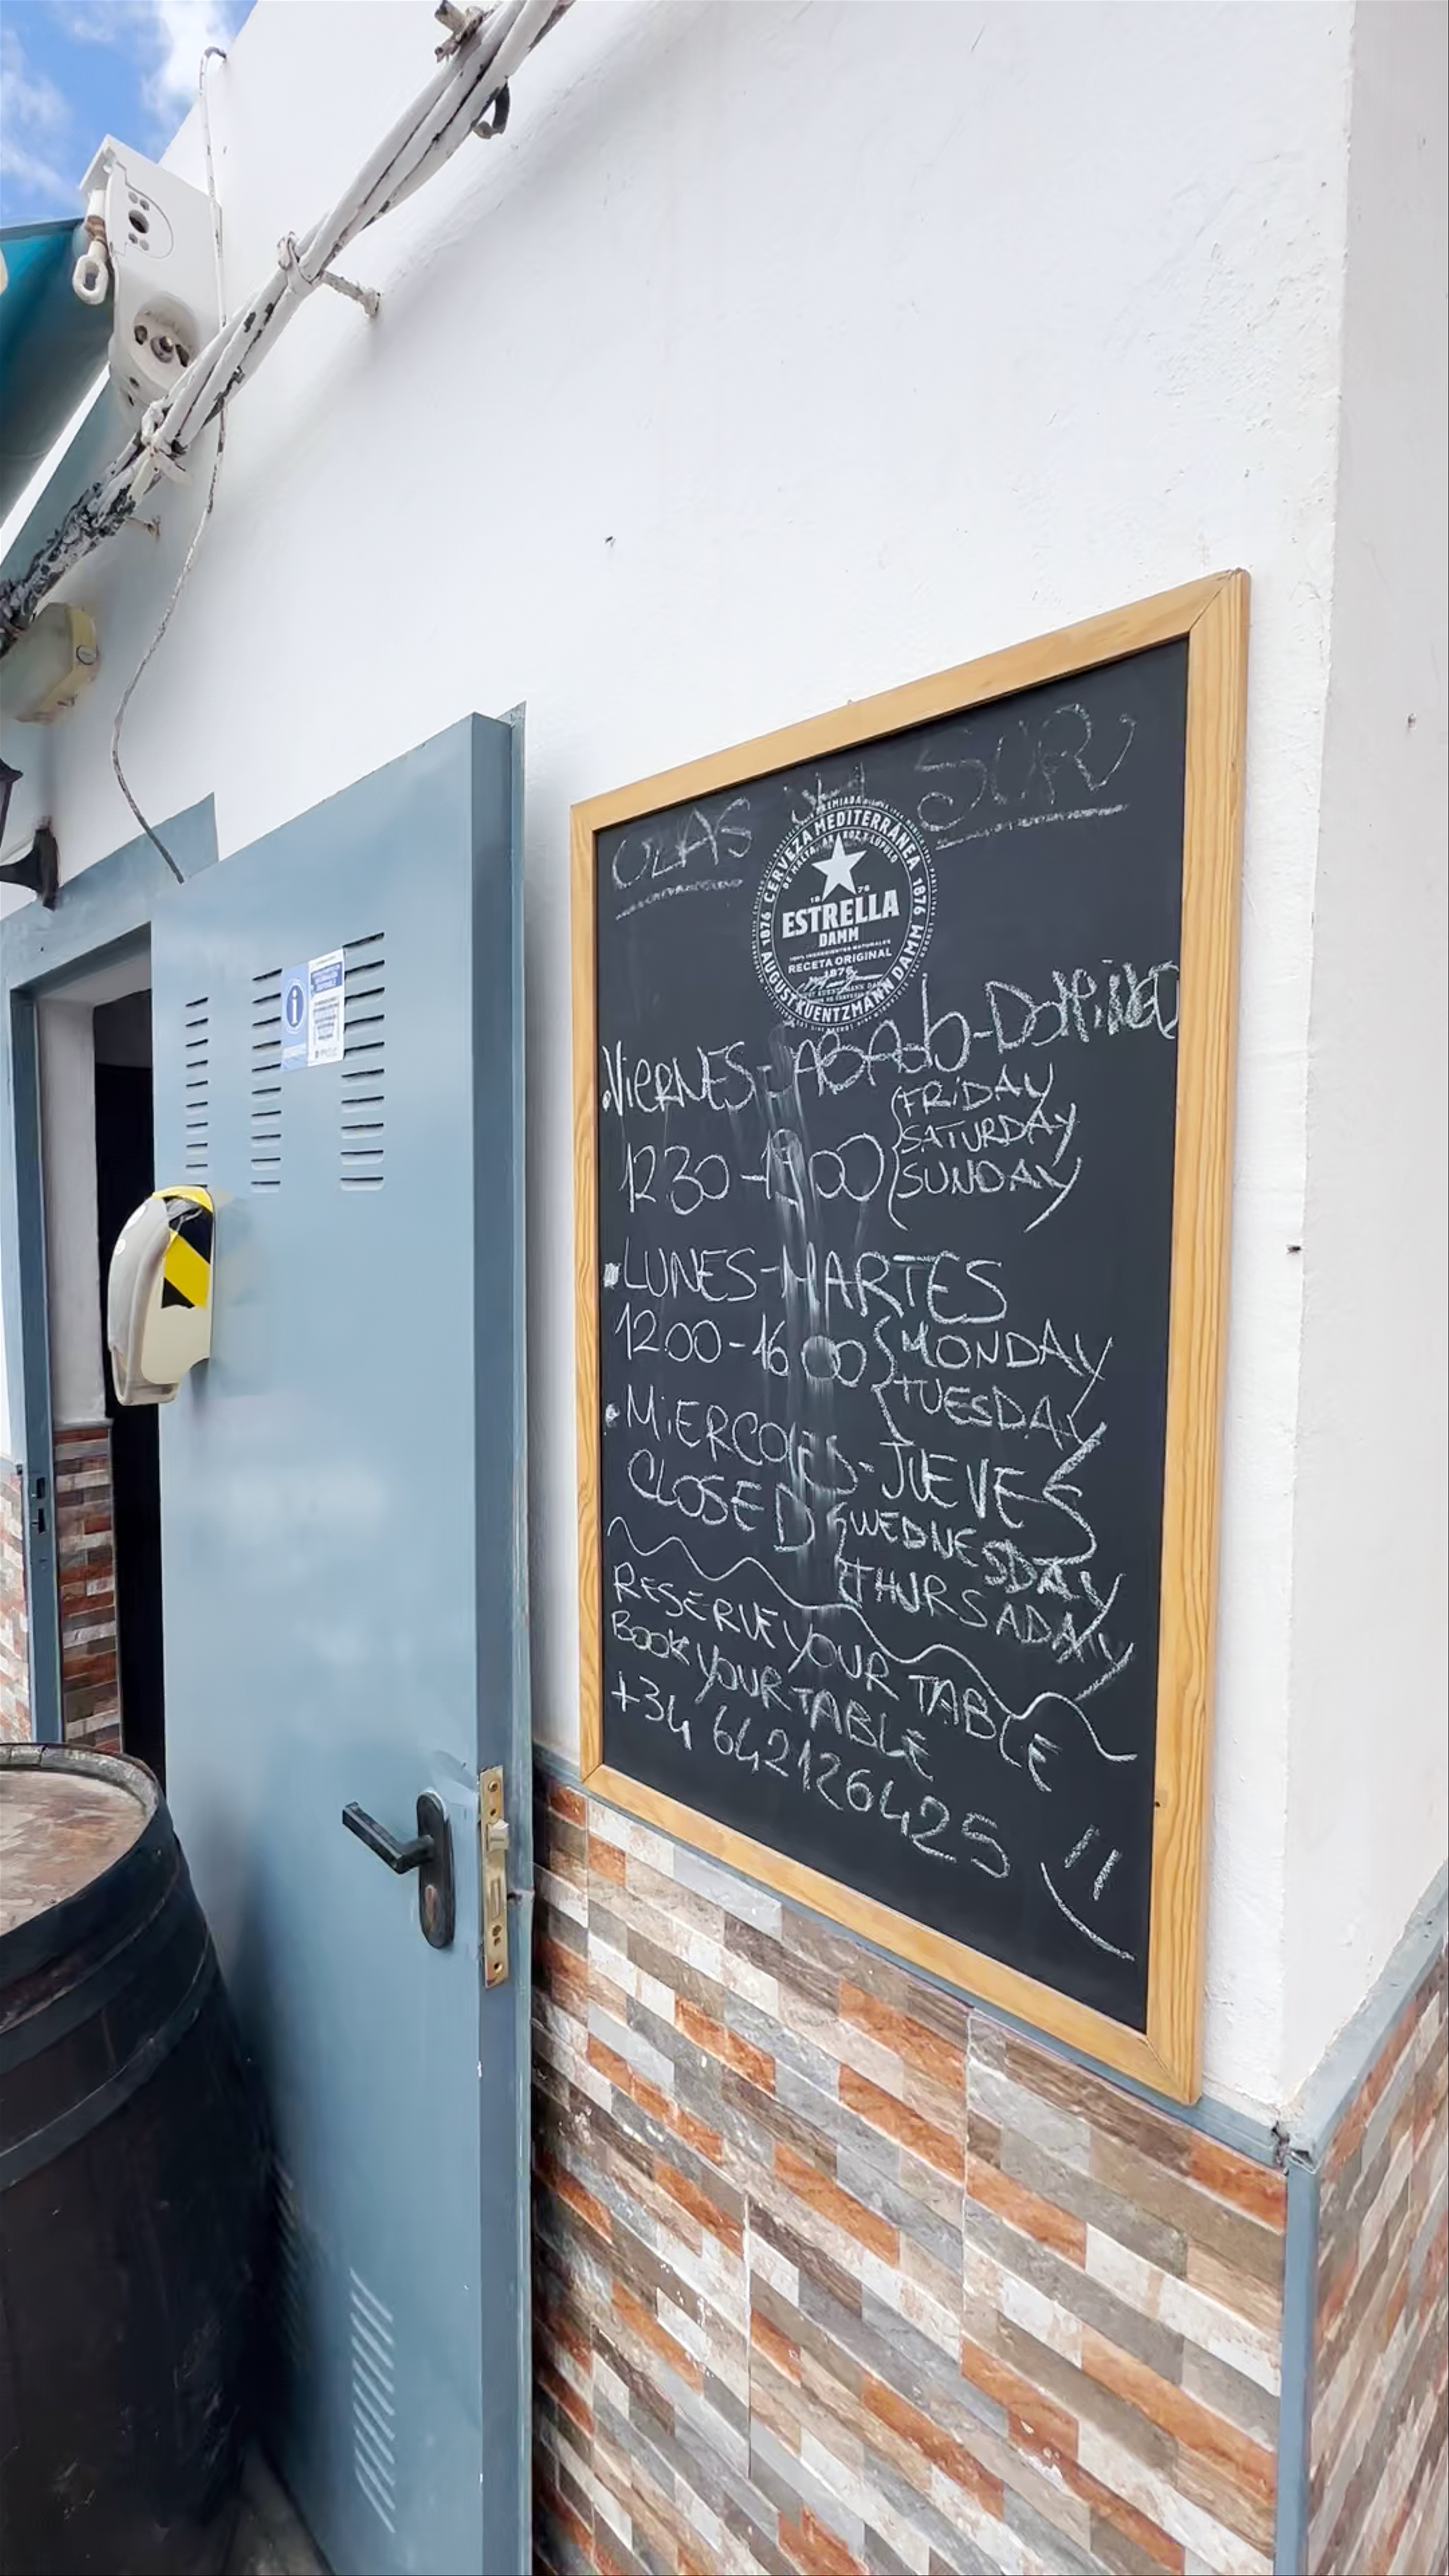 OLAS del SUR
CERVEZA MEDITERRÁNEA
1876
ESTRELLA
DAMM
RECETA ORIGINAL
1876
AUGUST KUENTZMANN DAMM
VIERNES-SABADO-DOMINGO
1230-1900 {FRIDAY
SATURDAY
SUNDAY
LUNES-MARTES
12.00-16.00 {MONDAY
TUESDAY
MIERCOLES-JUEVES
CLOSED {WEDNESDAY
THURSADAY
RESERVE YOUR TABLE
BOOK YOUR TABLE
+34 642126425